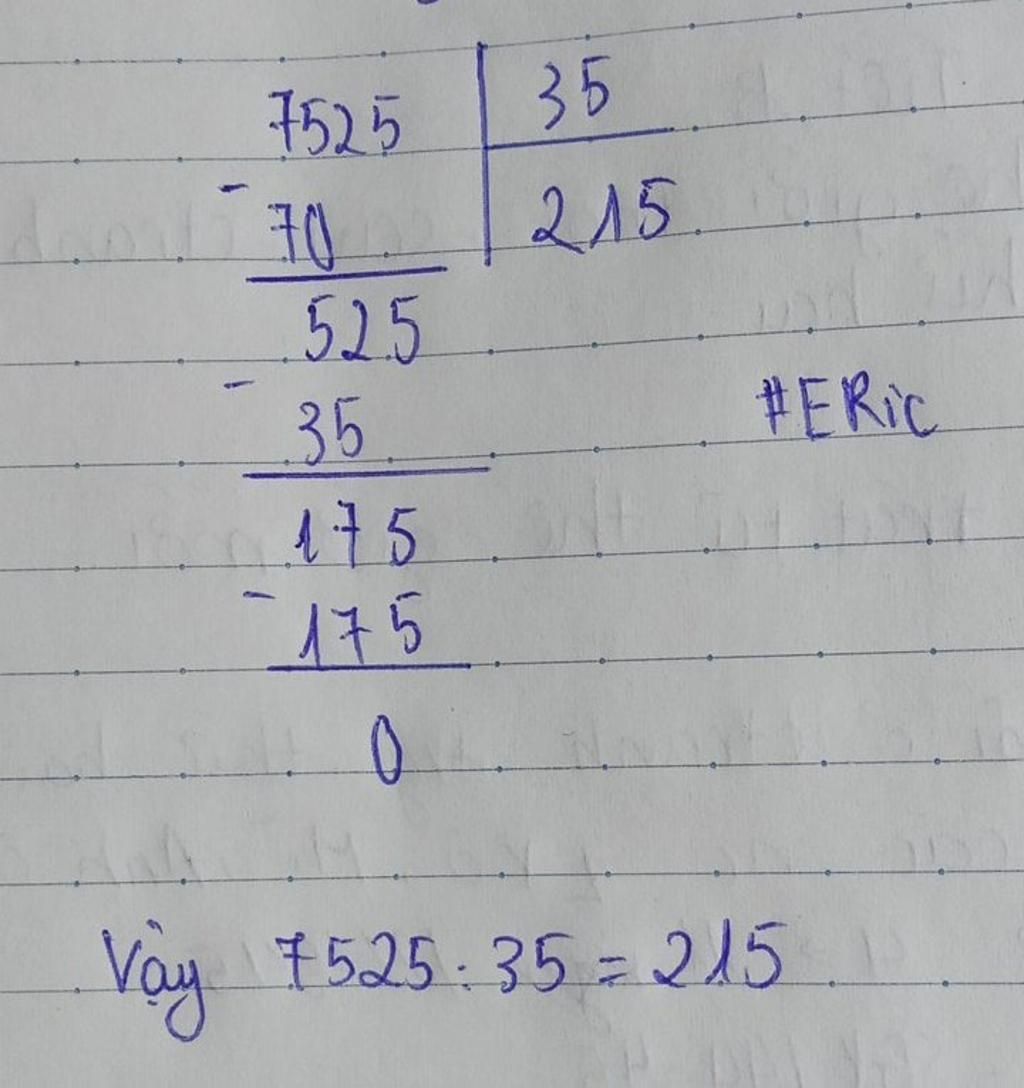 7525 35
- 70 215
525
- 35
#ERic
175
- 175
0
Vậy 7525 : 35 = 215